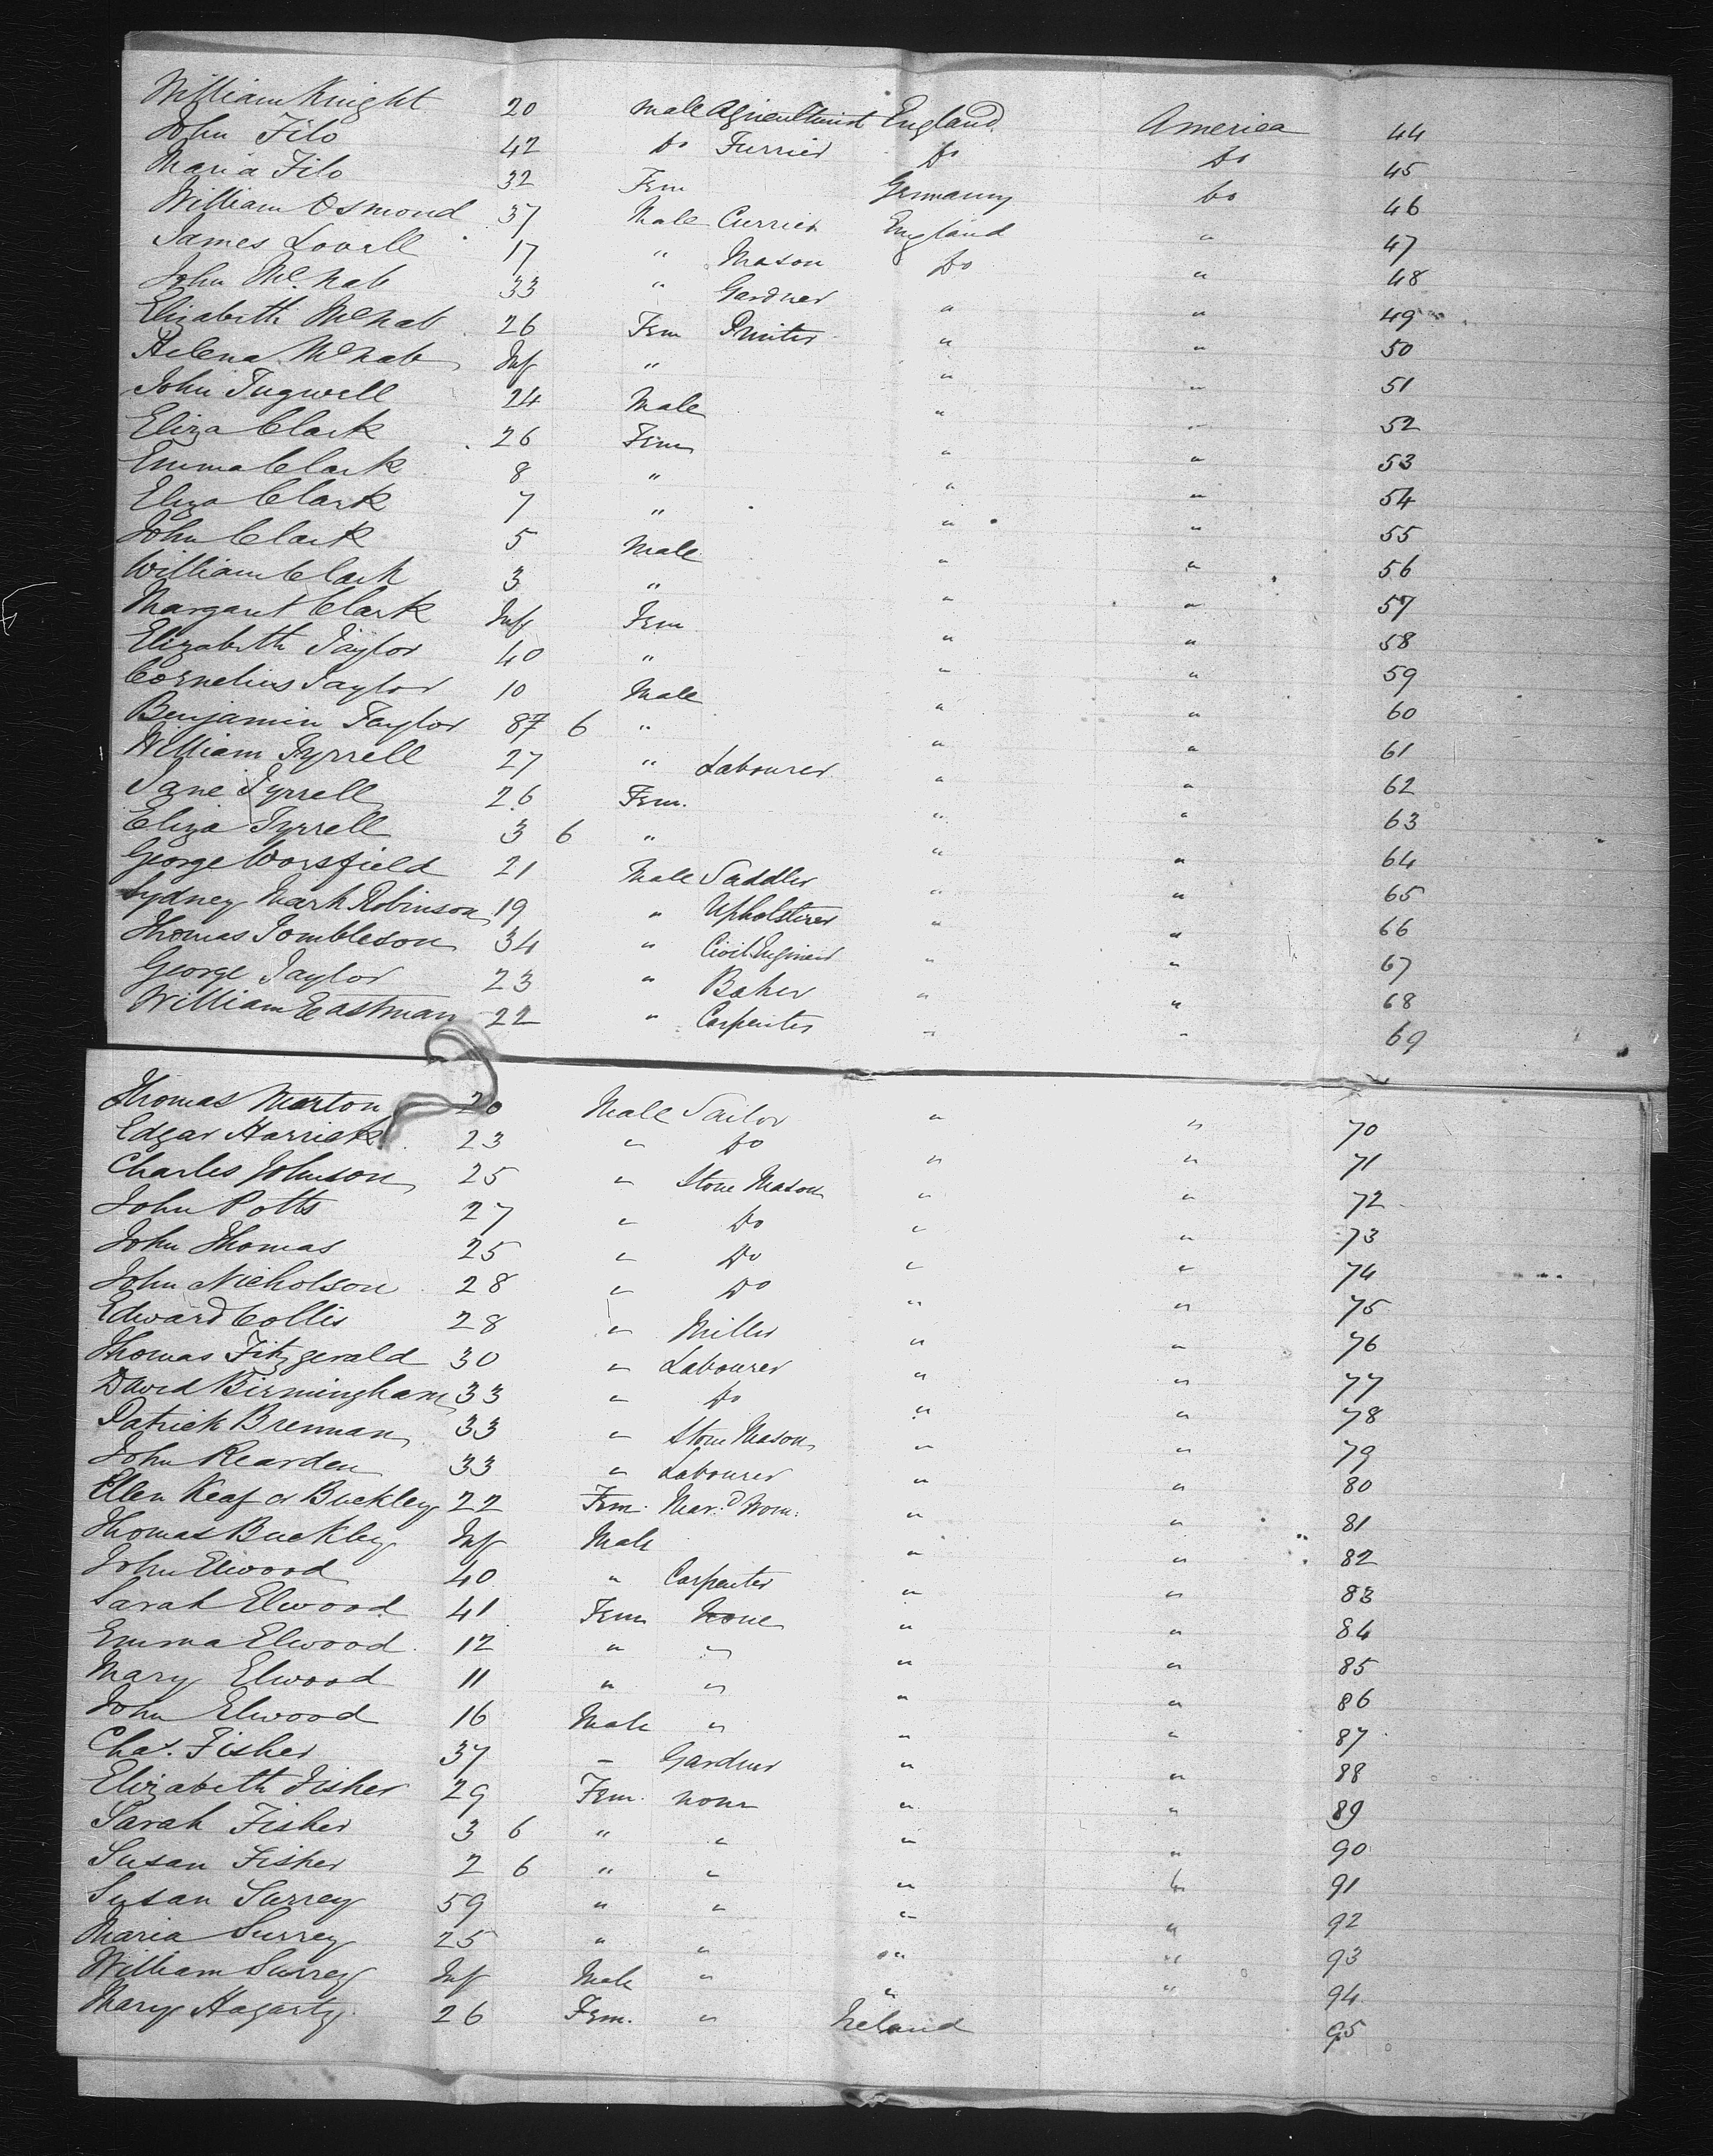 William Knight 20 Male Agriculturist England America 44
John Filo 42 do Furrier do do 45
Maria Filo 32 Fem Germany do 46
William Osmond 37 Male Currier England " 47
James Lovell 17 " Mason do " 48
John McNab 33 " Gardner " " 49
Elizabeth McNab 26 Fem Printer " " 50
Helena McNab Inf " " " 51
John Tugwell 24 Male " " 52
Eliza Clark 26 Fem " " 53
Emma Clark 8 " " " 54
Eliza Clark 7 " " " 55
John Clark 5 Male " " 56
William Clark 3 " " " 57
Margaret Clark Inf Fem " " 58
Elizabeth Taylor 40 " " " 59
Cornelius Taylor 10 Male " " 60
Benjamin Taylor 87 6 " " " 61
William Tyrrell 27 " Labourer " " 62
Jane Tyrrell 26 Fem. " " 63
Eliza Tyrrell 3 6 " " " 64
George Worsfield 21 Male Saddler " " 65
Sydney Mark Robinson 19 " Upholsterer " " 66
Thomas Tombleson 34 " Civil Engineer " " 67
George Taylor 23 " Baker " " 68
William Eastman 22 " Carpenter " " 69
Thomas Marton 20 Male Sailor " " 70
Edgar Harrick 23 " do " " 71
Charles Johnson 25 " Stone Mason " " 72
John Potts 27 " do " " 73
John Thomas 25 " do " " 74
John Nicholson 28 " do " " 75
Edward Collis 28 " Miller " " 76
Thomas Fitzgerald 30 " Labourer " " 77
David Birmingham 33 " do " " 78
Patrick Brennan 33 " Stone Mason " " 79
John Rearden 33 " Labourer " " 80
Ellen Keaf or Buckley 22 Fem. Mar.d Wom. " " 81
Thomas Buckley Inf Male " " 82
John Elwood 40 " Carpenter " " 83
Sarah Elwood 41 Fem None " " 84
Emma Elwood 12 " " " " 85
Mary Elwood 11 " " " " 86
John Elwood 16 Male " " " 87
Chas. Fisher 37 " Gardner " " 88
Elizabeth Fisher 29 Fem. none " " 89
Sarah Fisher 3 6 " " " " 90
Susan Fisher 2 6 " " " " 91
Susan Surrey 59 " " " " 92
Maria Surrey 25 " " " " 93
William Surrey Inf Male " " " 94
Mary Hagarty 26 Fem. " Ireland 95